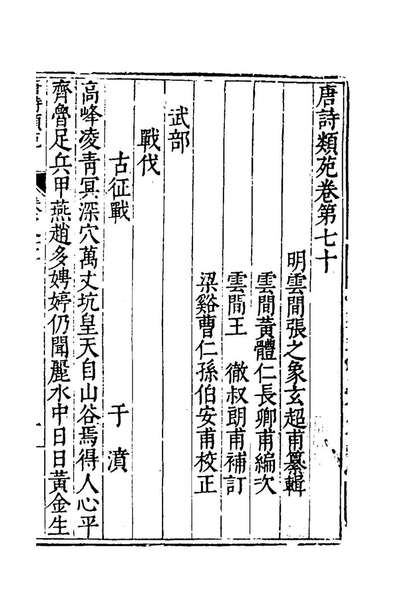 唐詩類苑卷第七十
明雲間張之象玄超甫纂輯
雲間黃體仁長卿甫編次
雲間王　徹叔朗甫補訂
梁谿曹仁孫伯安甫校正
武部
戰伐
古征戰　于濆
高峰凌青冥深穴萬丈坑皇天自山谷焉得人心平
齊魯足兵甲燕趙多娉婷仍聞麗水中日日黃金生